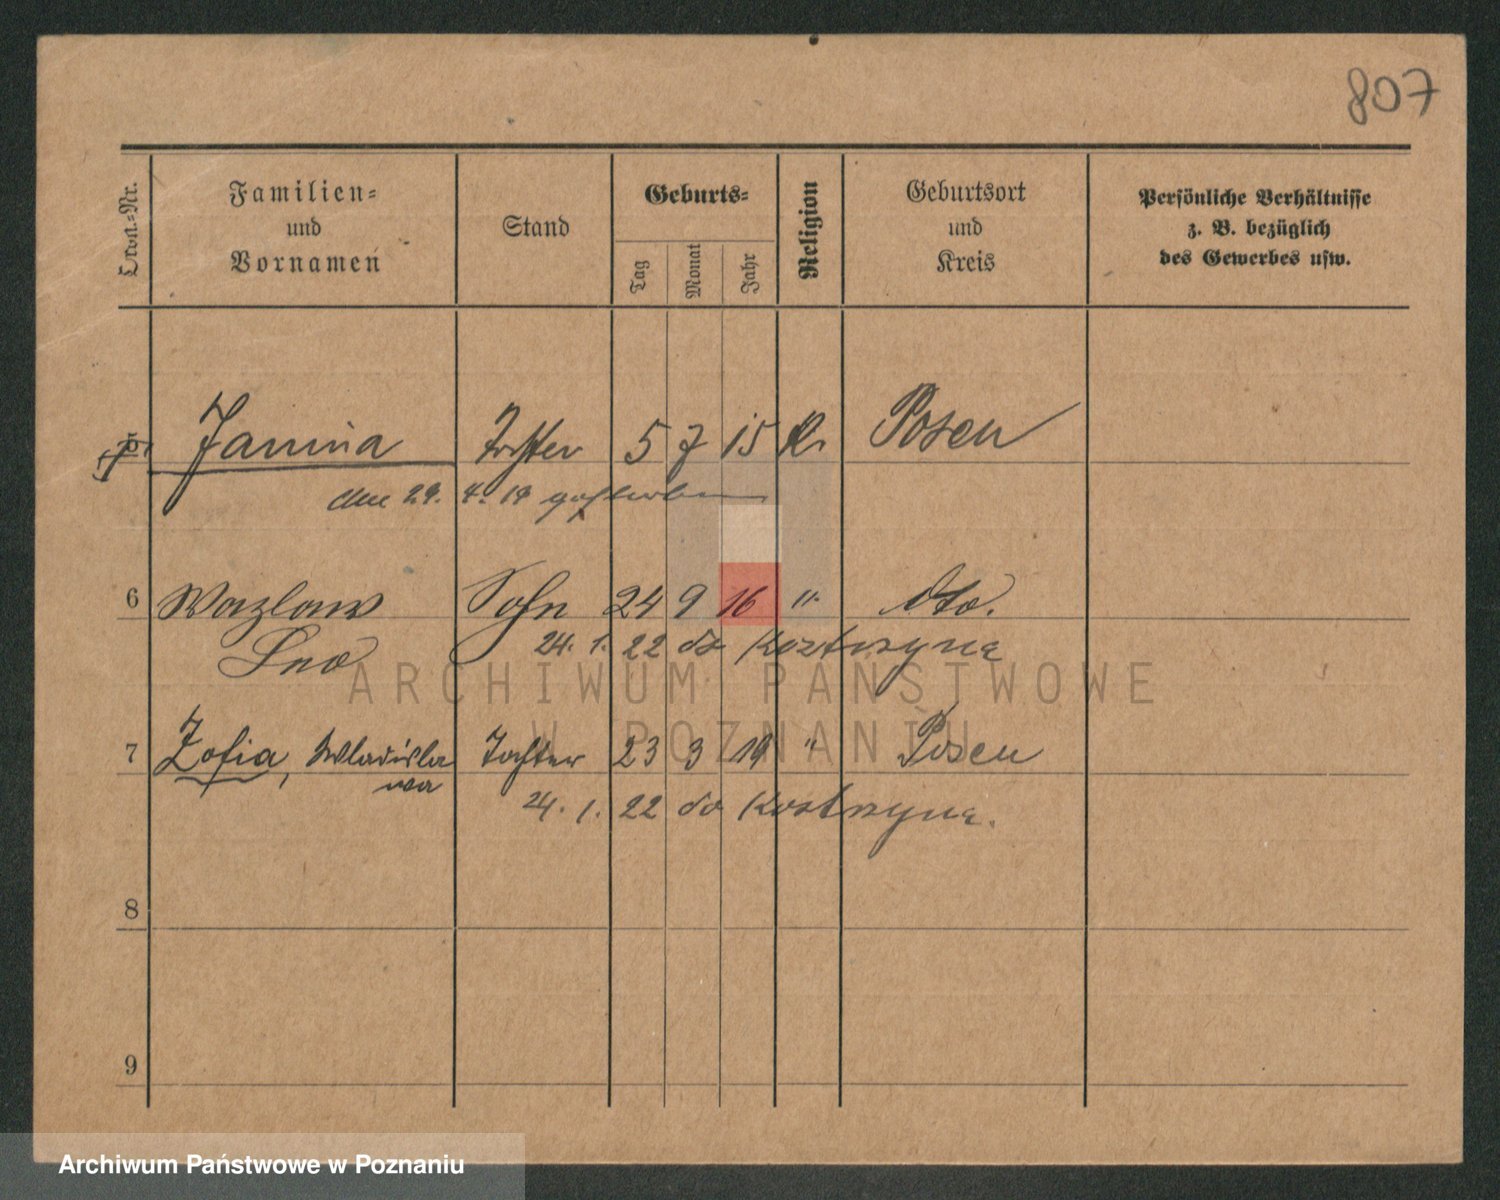 807
Ordn.-Nr.
Familien-
und
Vornamen
Stand
Geburts-
Tag
Monat
Jahr
Religion
Geburtsort
und
Kreis
Persönliche Verhältnisse
z. B. bezüglich
des Gewerbes usw.
5 Janina Tochter 5 7 15 K. Posen
den 29. 4. 19 gestorben
6 Wazlaw Sohn 24 9 16 " dto.
Leo 24. 1. 22 do Kostrzyna
7 Zofia, Wladisla Tochter 23 3 19 " Posen
wa
24. 1. 22 do Kostrzyna.
8
9
ARCHIWUM PAŃSTWOWE
W POZNANIU
Archiwum Państwowe w Poznaniu